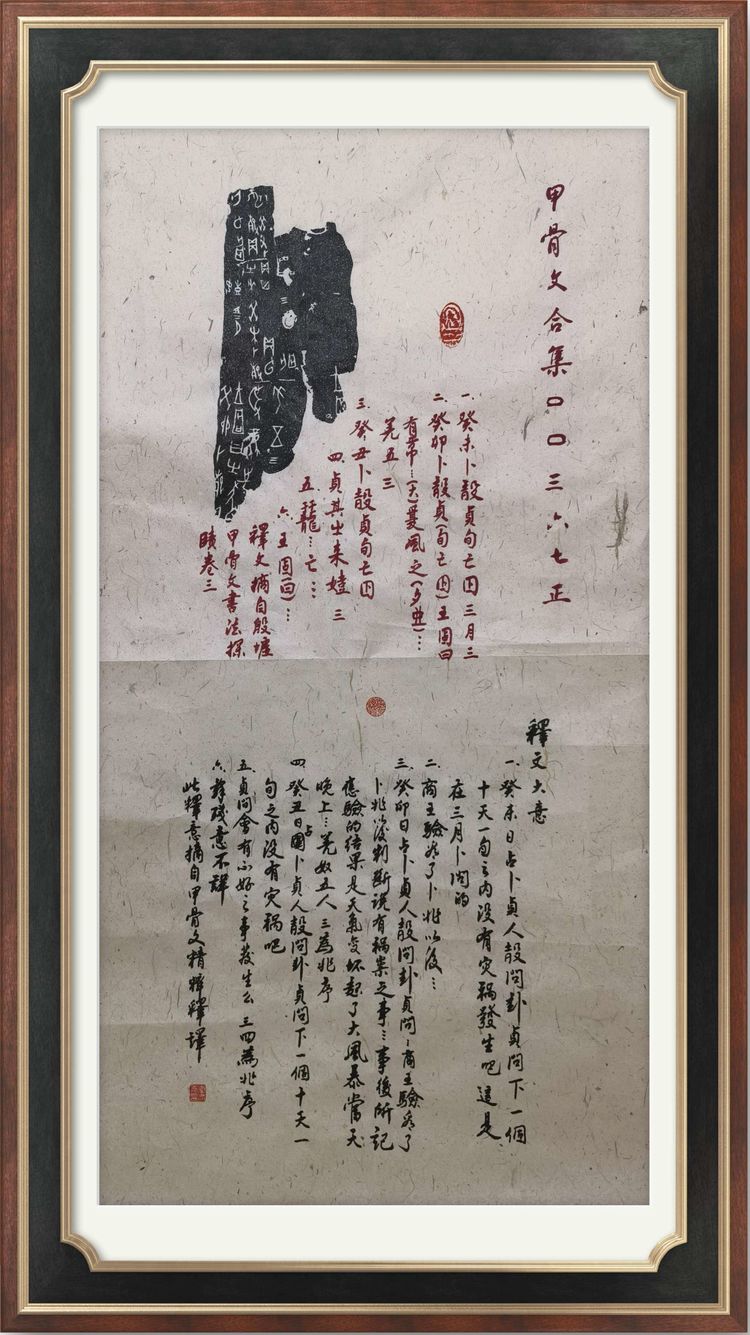 甲骨文合集〇〇三六七正
一、癸未卜㱿貞旬亡囚三月三
二、癸卯卜㱿貞(旬亡囚)王固曰
有祟…(大)蔑風之(夕䖵)…
羌五 三
三、癸丑卜㱿貞旬亡囚
四、貞其出来媸 三
五、龍…亡…
六、王固(曰)…
釋文摘自殷墟
甲骨文書法探
賾卷三
釋文大意
一、癸未日占卜貞人㱿問卦貞問下一個
十天一旬之内没有灾禍發生吧 這是
在三月卜問的
二、商王驗看了卜兆以後…
三、癸卯日占卜貞人㱿問卦貞問…商王驗看了
卜兆以後判断説有禍祟之事…事後所記
應驗的结果是天氣变坏起了大風暴當天
晚上…羌奴五人 三為兆序
四、癸丑日占卜貞人㱿問卦貞問下一個十天一
旬之内没有灾禍吧
五、貞問會有不好之事發生么 三四為兆序
六、辭残意不詳
此釋意摘自甲骨文精粹釋譯